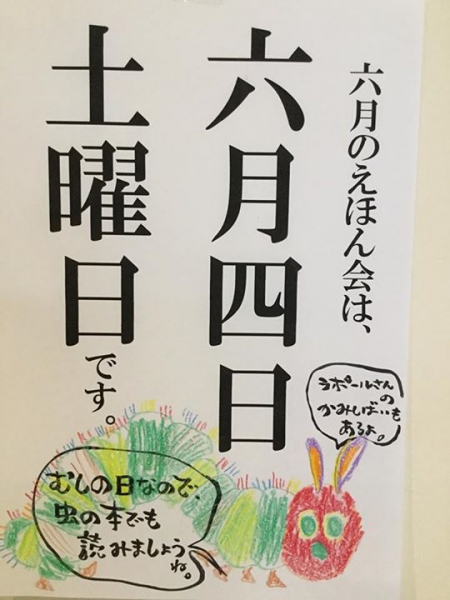 六月のえほん会は、
六月四日
土曜日です。
ラポールさん
の
かみしばいも
あるよ。
むしの日なので、
虫の本でも
読みましょう
ね。